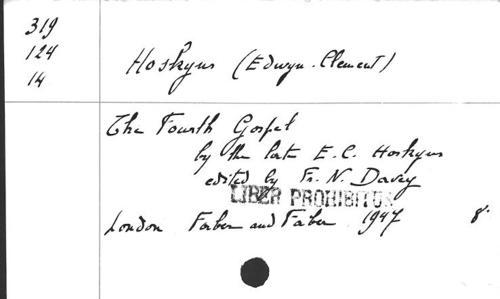 319
124
14
Hoskyns (Edwyn. Clement)
The Fourth Gospel
by the late E.C. Hoskyns
edited by Fr. N. Davey
LIBER PROHIBITUS
London Faber and Faber 1947 8°